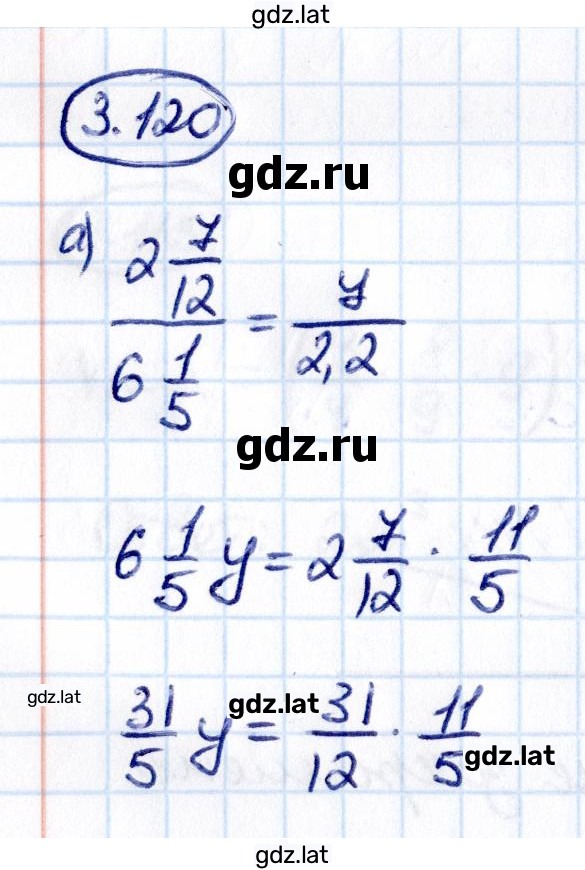 gdz.lat
3.120
gdz.ru
а) 2 7/12 / 6 1/5 = y / 2,2
gdz.ru
6 1/5 y = 2 7/12 · 11/5
gdz.lat
gdz.lat
31/5 y = 31/12 · 11/5
gdz.lat
gdz.lat